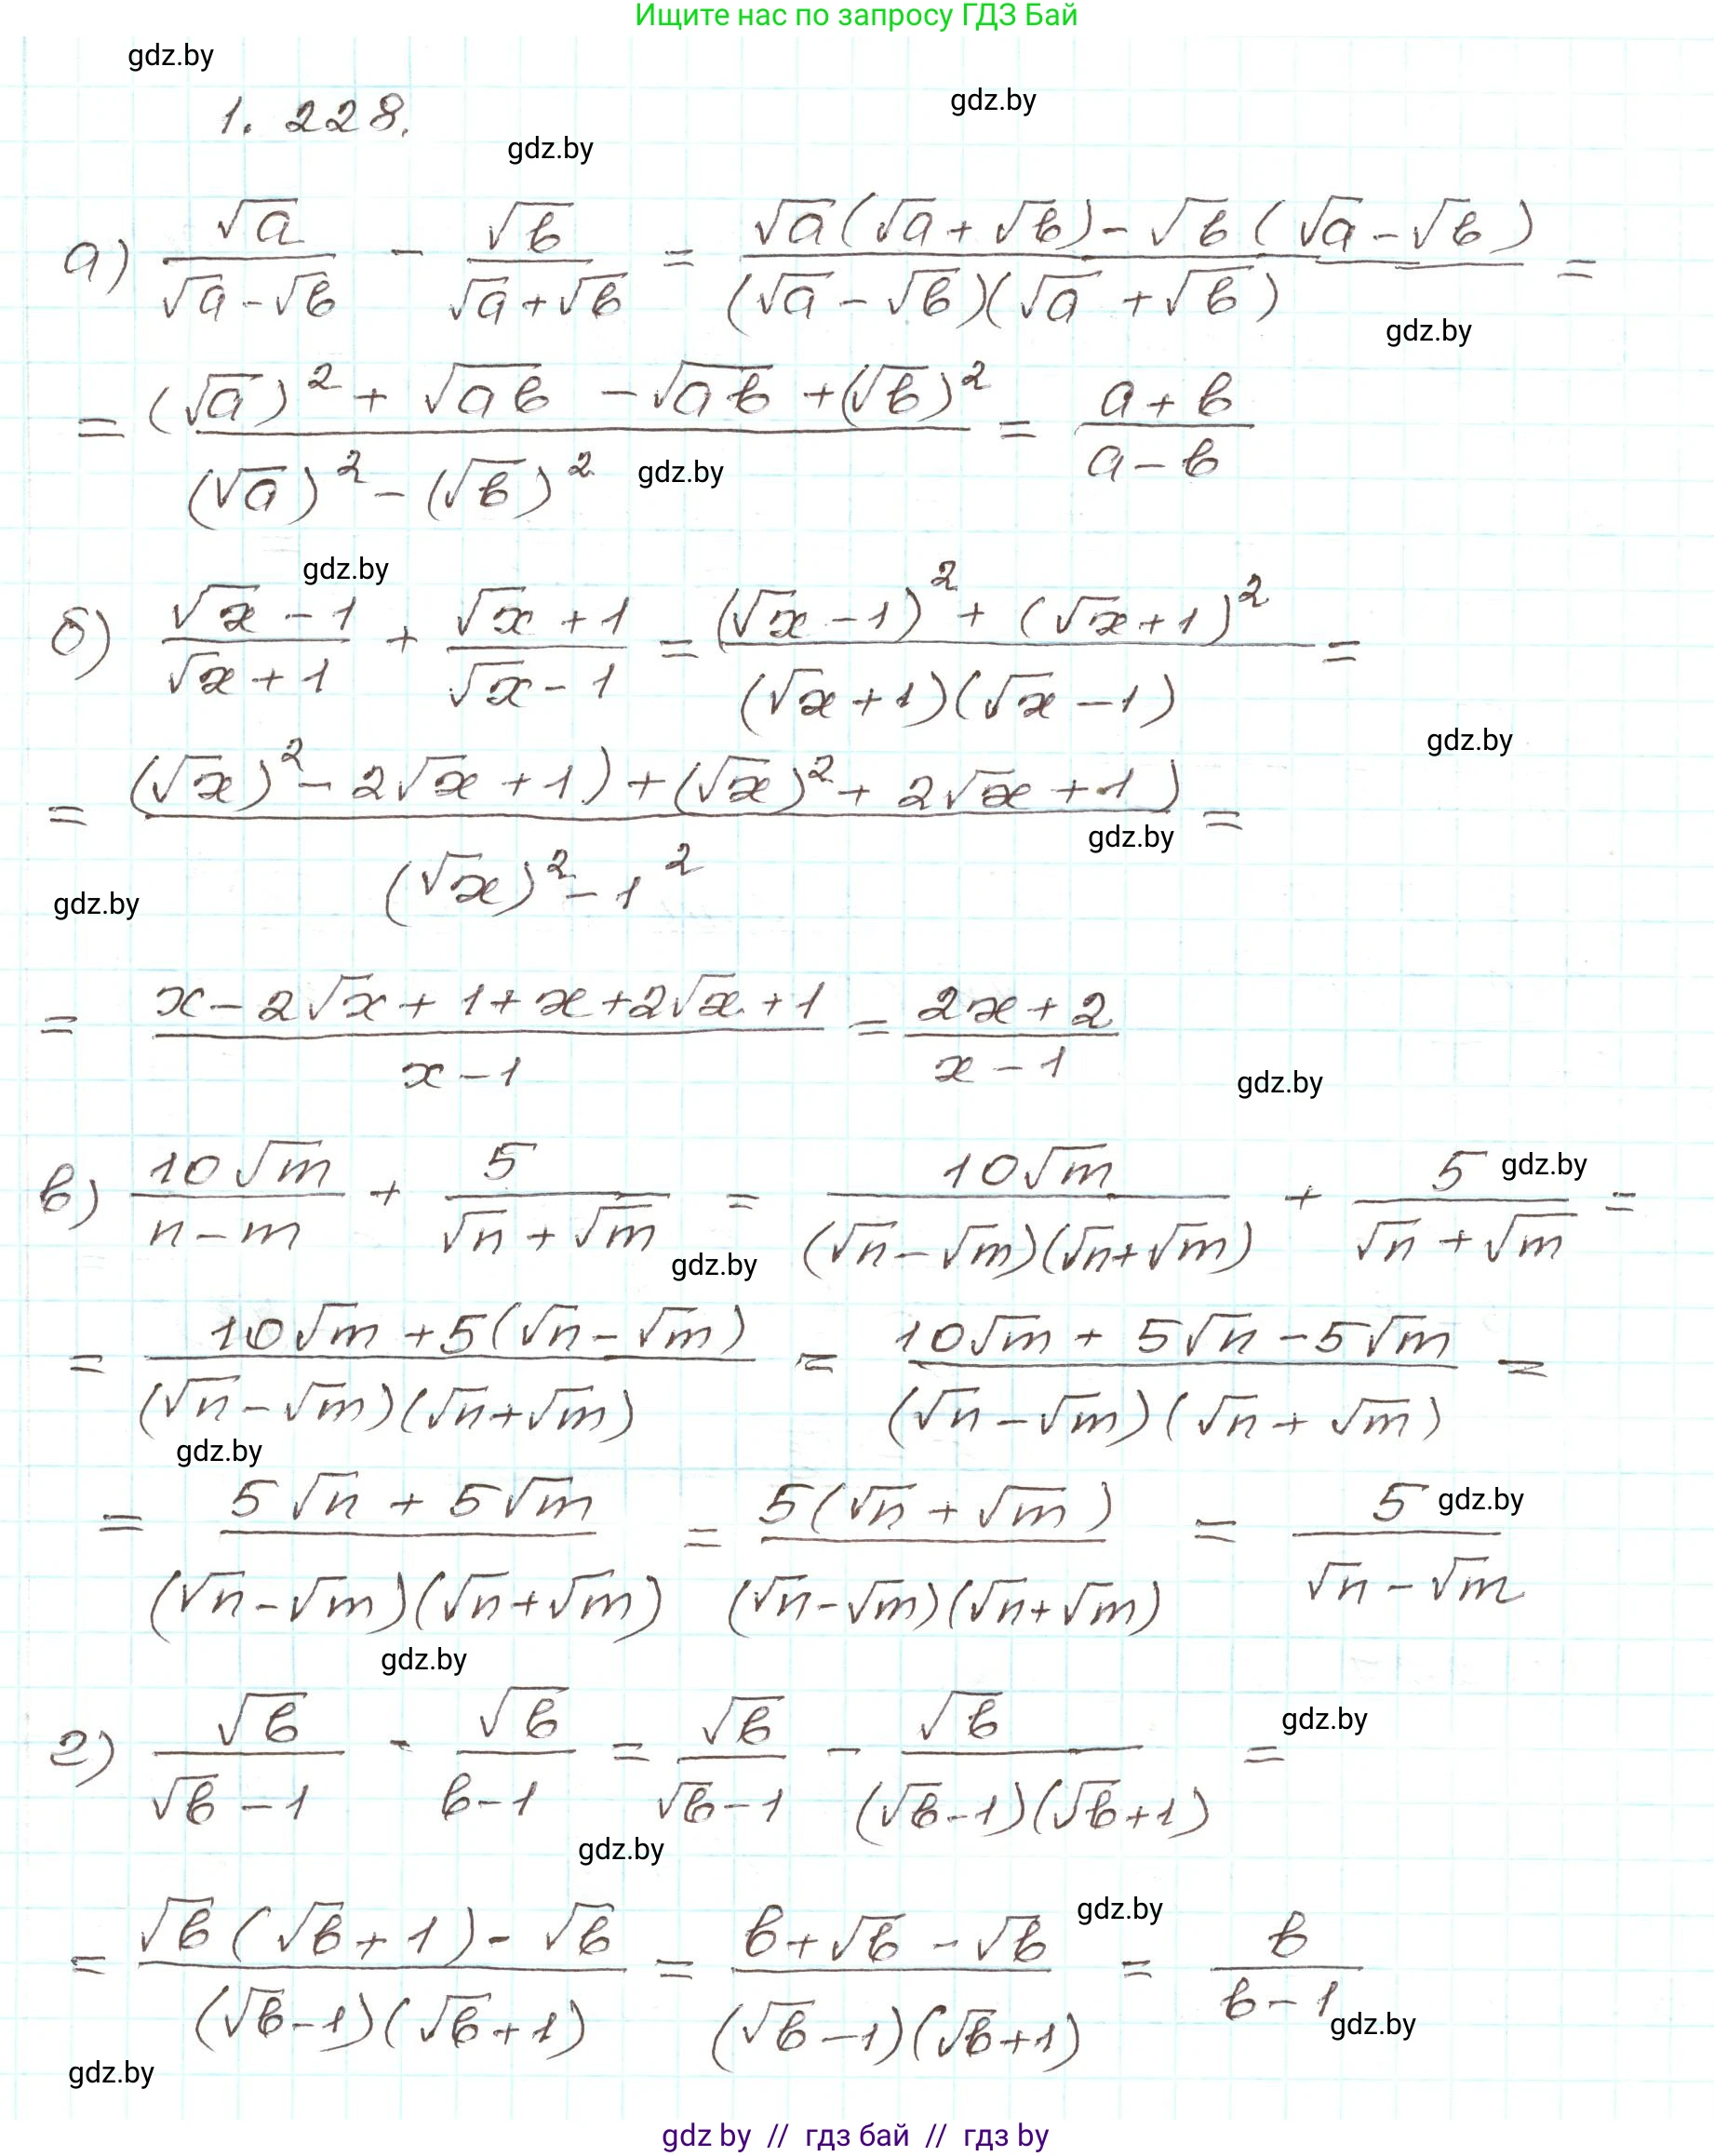 Ищите нас по запросу ГДЗ Бай
gdz.by
gdz.by
1. 228.
gdz.by
а) √a/(√a-√b) - √b/(√a+√b) = (√a(√a+√b)-√b(√a-√b))/((√a-√b)(√a+√b)) =
gdz.by
= ((√a)²+√ab-√ab+(√b)²)/((√a)²-(√b)²) = (a+b)/(a-b)
gdz.by
gdz.by
б) (√x-1)/(√x+1) + (√x+1)/(√x-1) = ((√x-1)²+(√x+1)²)/((√x+1)(√x-1)) =
gdz.by
= ((√x)²-2√x+1)+(√x)²+2√x+1)/((√x)²-1²) =
gdz.by
gdz.by
= (x-2√x+1+x+2√x+1)/(x-1) = (2x+2)/(x-1)
gdz.by
в) 10√m/(n-m) + 5/(√n+√m) = 10√m/((√n-√m)(√n+√m)) + 5/(√n+√m) =
gdz.by
gdz.by
= (10√m+5(√n-√m))/((√n-√m)(√n+√m)) = (10√m+5√n-5√m)/((√n-√m)(√n+√m)) =
gdz.by
= (5√n+5√m)/((√n-√m)(√n+√m)) = 5(√n+√m)/((√n-√m)(√n+√m)) = 5/(√n-√m)
gdz.by
gdz.by
г) √b/(√b-1) - √b/(b-1) = √b/(√b-1) - √b/((√b-1)(√b+1)) =
gdz.by
gdz.by
= (√b(√b+1)-√b)/((√b-1)(√b+1)) = (b+√b-√b)/((√b-1)(√b+1)) = b/(b-1)
gdz.by
gdz.by
gdz.by
gdz by // гдз бай // гдз by